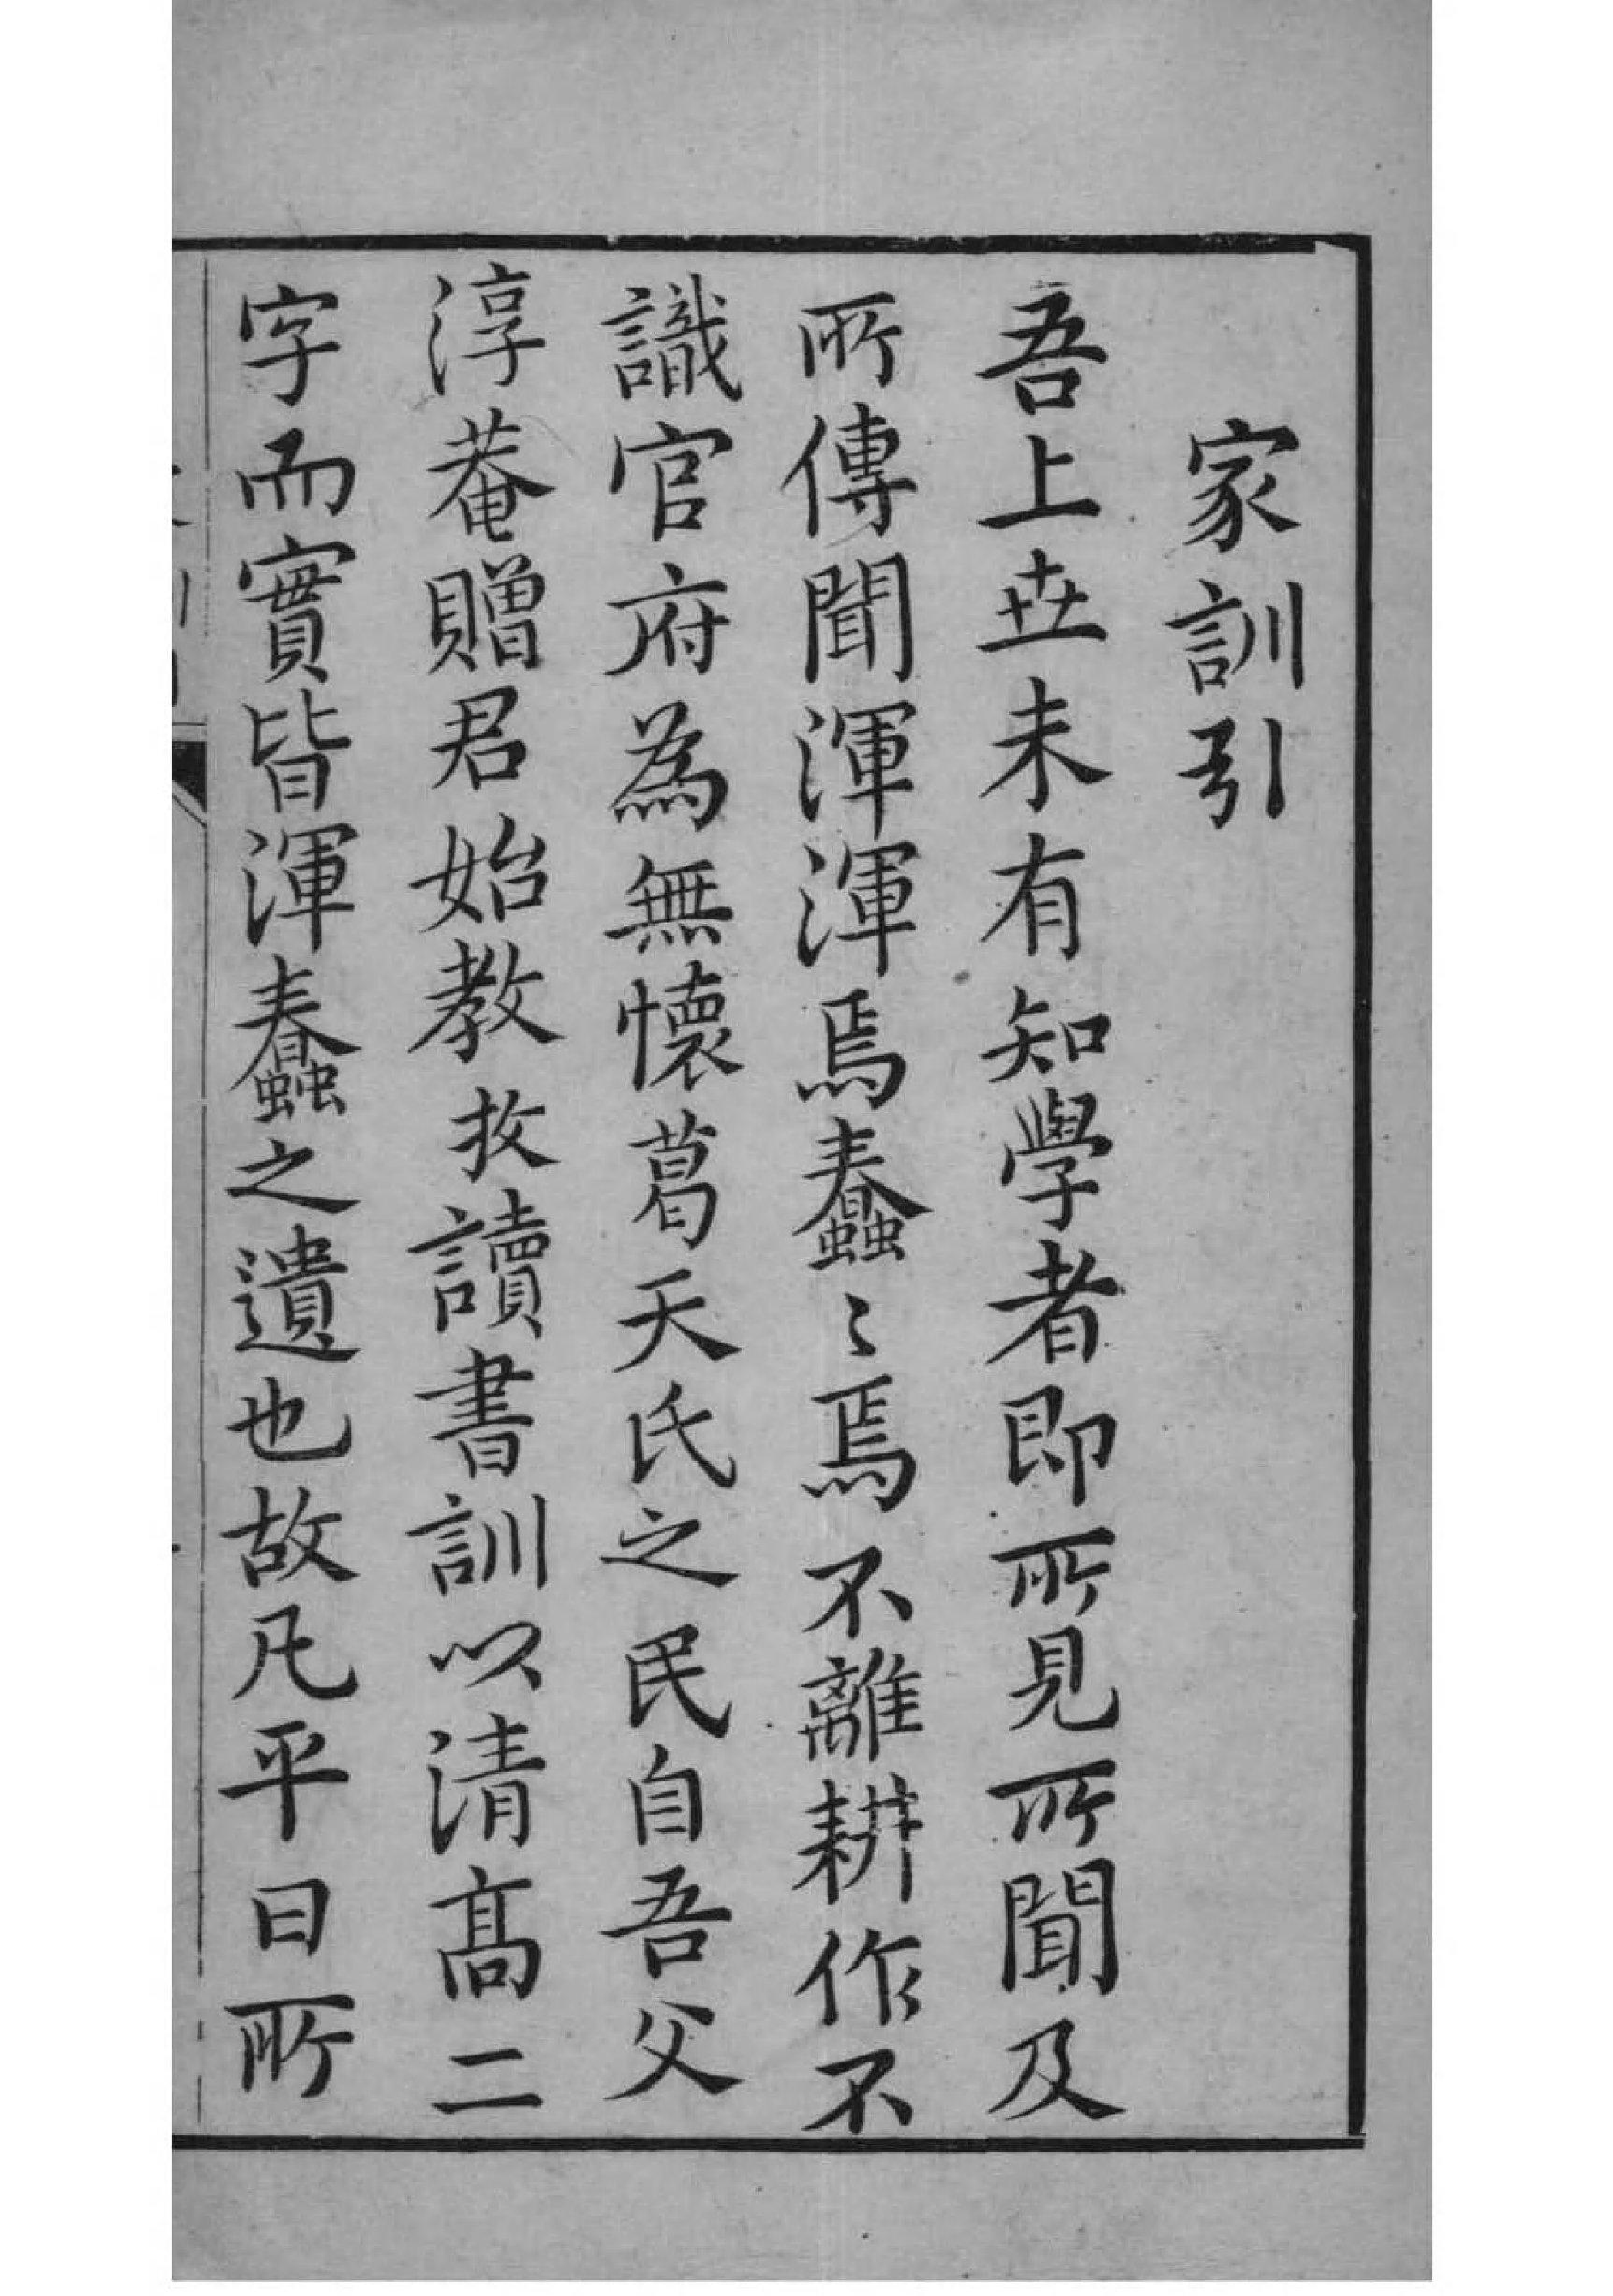 家訓引
吾上丗未有知學者即所見所聞及
所傳聞渾渾焉蠢〻焉不離耕作不
識官府為無懷葛天氏之民自吾父
淳菴贈君始教孜讀書訓以清髙二
字而實皆渾蠢之遺也故凡平日所